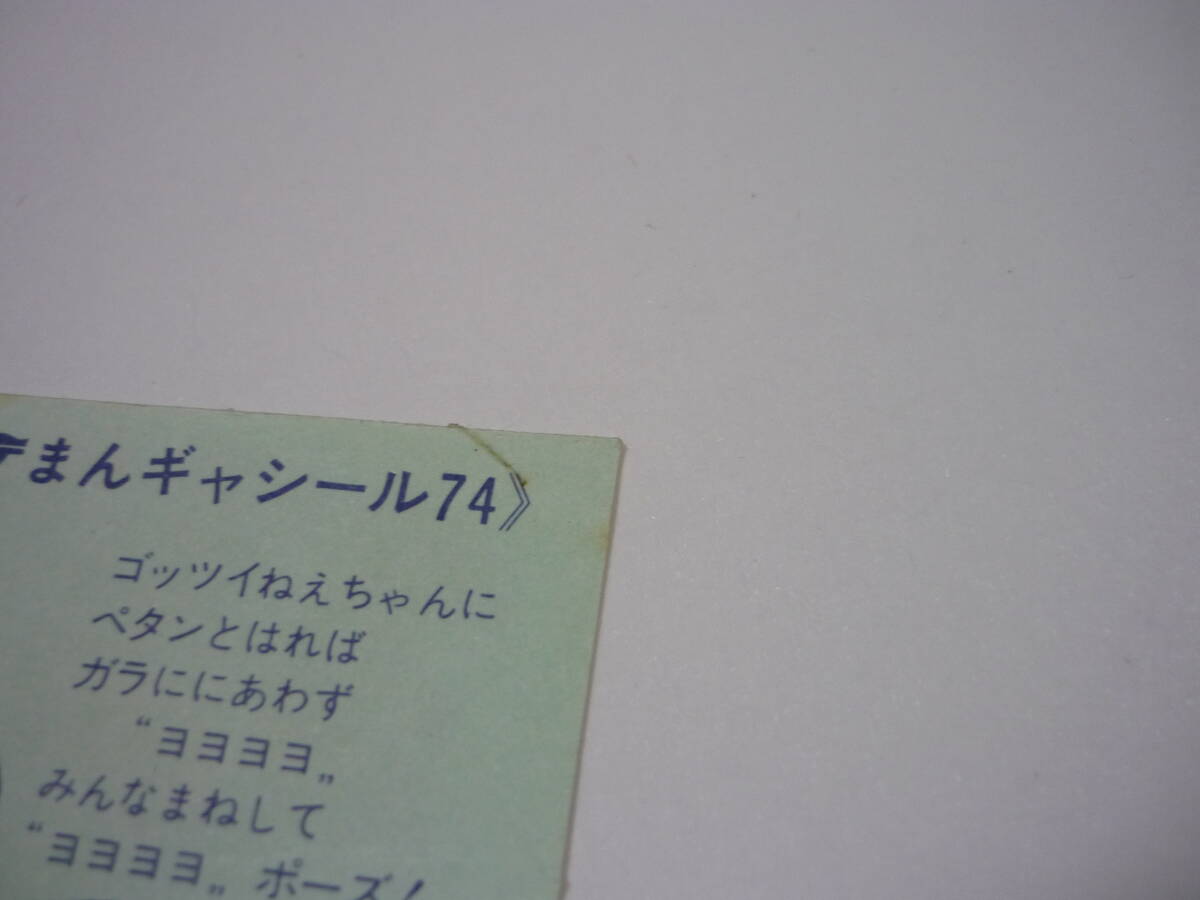 まんギャシール74》
ゴッツイねえちゃんに
ペタンとはれば
ガラににあわず
“ヨヨヨヨ„
みんなまねして
“ヨヨヨヨ„ ポーズ!